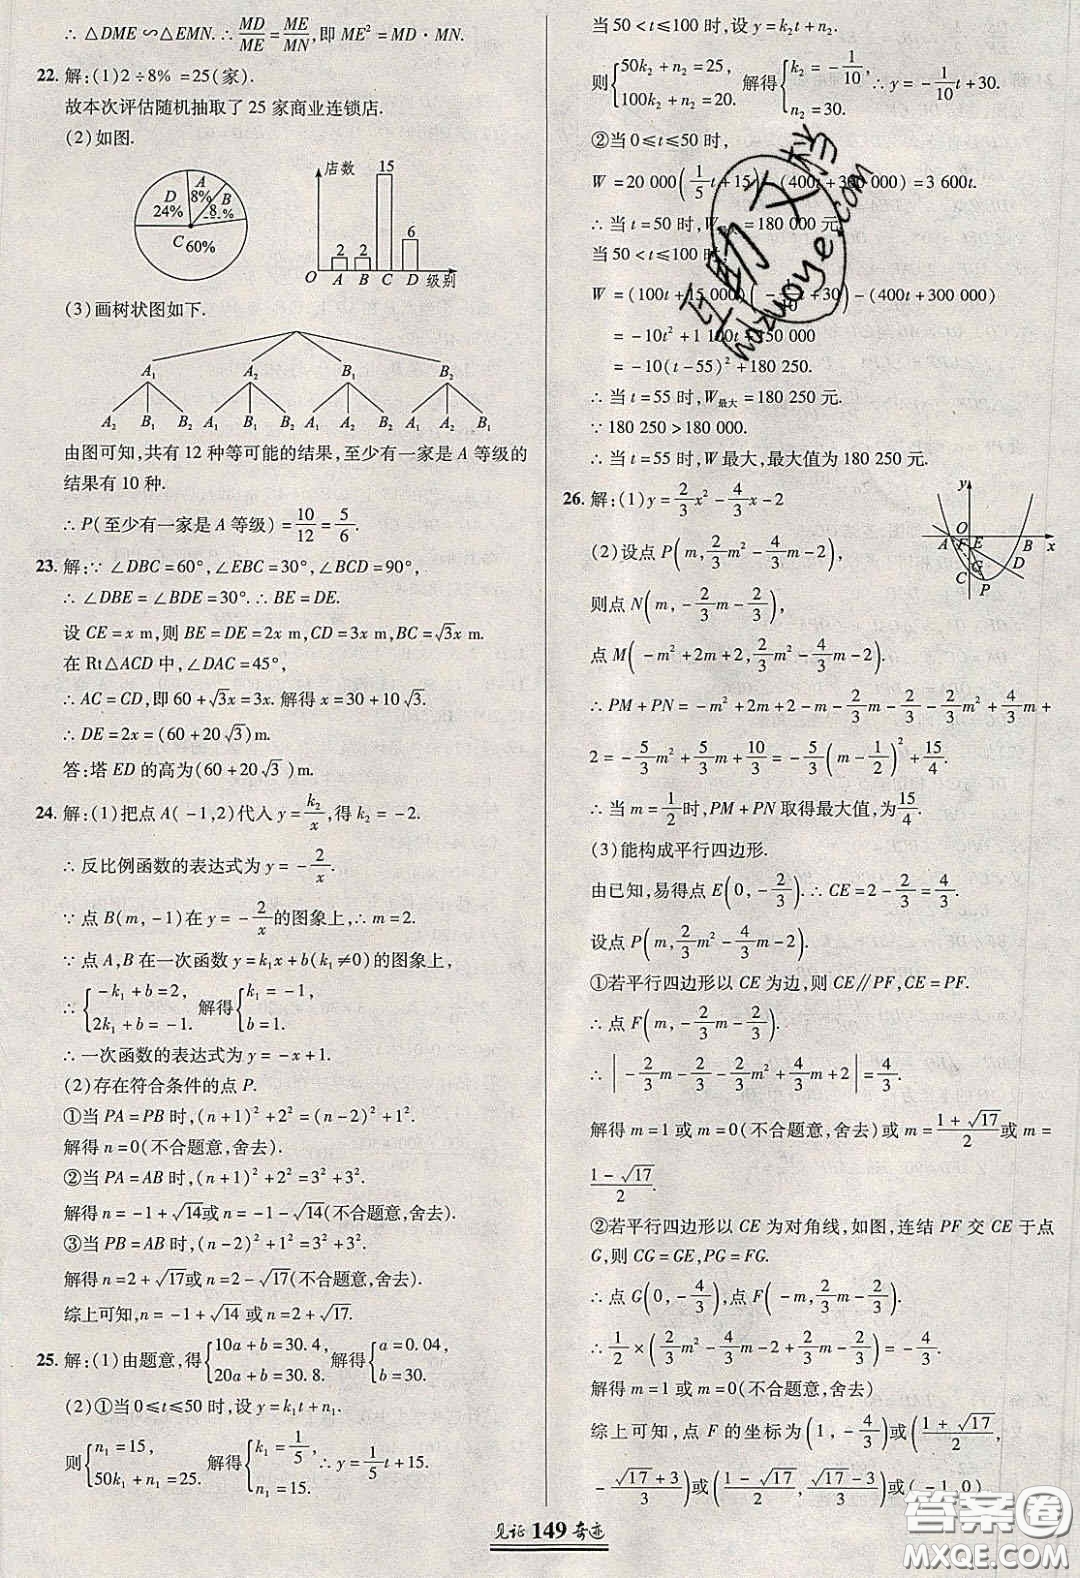 ∴ △DME ∽△EMN. ∴ MD/ME = ME/MN, 即 ME² = MD · MN.
22. 解:(1)2 ÷ 8% = 25(家).
故本次评估随机抽取了 25 家商业连锁店.
(2)如图.
A 8%
D 24%
B
C 60%
店数
15
2 2
6
O A B C D 级别
(3)画树状图如下.
A₁ A₂ B₁ B₂
A₂ B₁ B₂ A₁ B₁ B₂ A₁ A₂ B₂ A₁ A₂ B₁
由图可知,共有 12 种等可能的结果,至少有一家是 A 等级的
结果有 10 种.
∴ P(至少有一家是 A 等级) = 10/12 = 5/6.
23. 解:∵ ∠DBC = 60°, ∠EBC = 30°, ∠BCD = 90°,
∴ ∠DBE = ∠BDE = 30°. ∴ BE = DE.
设 CE = x m,则 BE = DE = 2x m, CD = 3x m, BC = √3x m.
在 Rt△ACD 中, ∠DAC = 45°,
∴ AC = CD,即 60 + √3x = 3x. 解得 x = 30 + 10√3.
∴ DE = 2x = (60 + 20√3)m.
答:塔 ED 的高为(60 + 20√3)m.
24. 解:(1)把点 A( -1,2)代入 y = k₂/x,得 k₂ = -2.
∴ 反比例函数的表达式为 y = -2/x.
∵ 点 B(m, -1)在 y = -2/x 的图象上, ∴ m = 2.
∵ 点 A,B 在一次函数 y = k₁x + b(k₁ ≠ 0)的图象上,
∴ { -k₁ + b = 2, 2k₁ + b = -1. 解得 { k₁ = -1, b = 1.
∴ 一次函数的表达式为 y = -x + 1.
(2)存在符合条件的点 P.
①当 PA = PB 时,(n + 1)² + 2² = (n - 2)² + 1².
解得 n = 0(不合题意,舍去).
②当 PA = AB 时,(n + 1)² + 2² = 3² + 3².
解得 n = -1 + √14 或 n = -1 - √14(不合题意,舍去).
③当 PB = AB 时,(n - 2)² + 1² = 3² + 3².
解得 n = 2 + √17 或 n = 2 - √17(不合题意,舍去).
综上可知, n = -1 + √14 或 n = 2 + √17.
25. 解:(1)由题意,得 { 10a + b = 30.4, 20a + b = 30.8. 解得 { a = 0.04, b = 30.
(2)①当 0 ≤ t ≤ 50 时,设 y = k₁t + n₁.
则 { n₁ = 15, 50k₁ + n₁ = 25. 解得 { k₁ = 1/5, n₁ = 15. ∴ y = 1/5 t + 15.
当 50 < t ≤ 100 时,设 y = k₂t + n₂.
则 { 50k₂ + n₂ = 25, 100k₂ + n₂ = 20. 解得 { k₂ = -1/10, n₂ = 30. ∴ y = -1/10 t + 30.
②当 0 ≤ t ≤ 50 时,
W = 20 000(1/5 t + 15) - (400t + 300 000) = 3 600t.
∴ 当 t = 50 时, W = 180 000 元.
当 50 < t ≤ 100 时,
W = (100t + 15 000)(-1/10 t + 30) - (400t + 300 000)
= -10t² + 1 100t + 150 000
= -10(t - 55)² + 180 250.
∴ 当 t = 55 时, W最大 = 180 250 元.
∵ 180 250 > 180 000.
∴ 当 t = 55 时, W 最大,最大值为 180 250 元.
26. 解:(1)y = 2/3 x² - 4/3 x - 2
y
A O F E B x
G D
C P
(2)设点 P(m, 2/3 m² - 4/3 m - 2),
则点 N(m, -2/3 m - 2/3),
点 M(-m² + 2m + 2, 2/3 m² - 4/3 m - 2).
∴ PM + PN = -m² + 2m + 2 - m - 2/3 m - 2/3 - 2/3 m² + 4/3 m +
2 = -5/3 m² + 5/3 m + 10/3 = -5/3 (m - 1/2)² + 15/4
∴ 当 m = 1/2 时, PM + PN 取得最大值,为 15/4.
(3)能构成平行四边形.
由已知,易得点 E(0, -2/3). ∴ CE = 2 - 2/3 = 4/3.
设点 P(m, 2/3 m² - 4/3 m - 2).
①若平行四边形以 CE 为边,则 CE∥PF, CE = PF.
∴ 点 F(m, -2/3 m - 2/3).
∴ | -2/3 m - 2/3 - 2/3 m² + 4/3 m + 2 | = 4/3.
解得 m = 1 或 m = 0(不合题意,舍去)或 m = (1 + √17)/2 或 m =
(1 - √17)/2.
②若平行四边形以 CE 为对角线,如图,连结 PF 交 CE 于点
G,则 CG = GE, PG = FG.
∴ 点 G(0, -4/3),点 F(-m, 2/3 m - 2/3).
∴ 1/2 × (2/3 m² - 4/3 m - 2 + 2/3 m - 2/3) = -4/3.
解得 m = 1 或 m = 0(不合题意,舍去)
综上可知,点 F 的坐标为(1, -4/3)或((1 + √17)/2,
-(√17 + 3)/3)或((1 - √17)/2, (√17 - 3)/3)或( -1,0).
见证 149 奇迹
互助文档
hdzuoye.com
答案圈
MXQE.COM